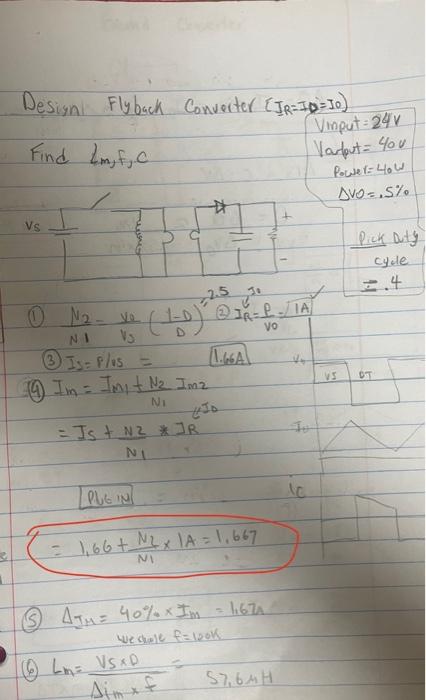 Design Flyback Converter [IR=ID=IO)
Vinput = 24V
Voutput = 40V
Power = 40W
ΔVO = .5%
Find Lm, f, C
Pick Duty
cycle
= .4
VS
+
-
① N2/N1 = Vo/Vs (1-D/D) = 2.5
② IR = P/VO = 1A ✓
IO
③ Is = P/vs = 1.66A
④ Im = Im1 + N2/N1 Im2
= Is + N2/N1 * IR
IO
VS DT
iC
PLUG IN
= 1.66 + N2/N1 × 1A = 1.667
⑤ ΔIM = 40% × Im = 1.67A
we chose f = 100K
⑥ Lm = VS × D / Δim × f = 57.6 μH